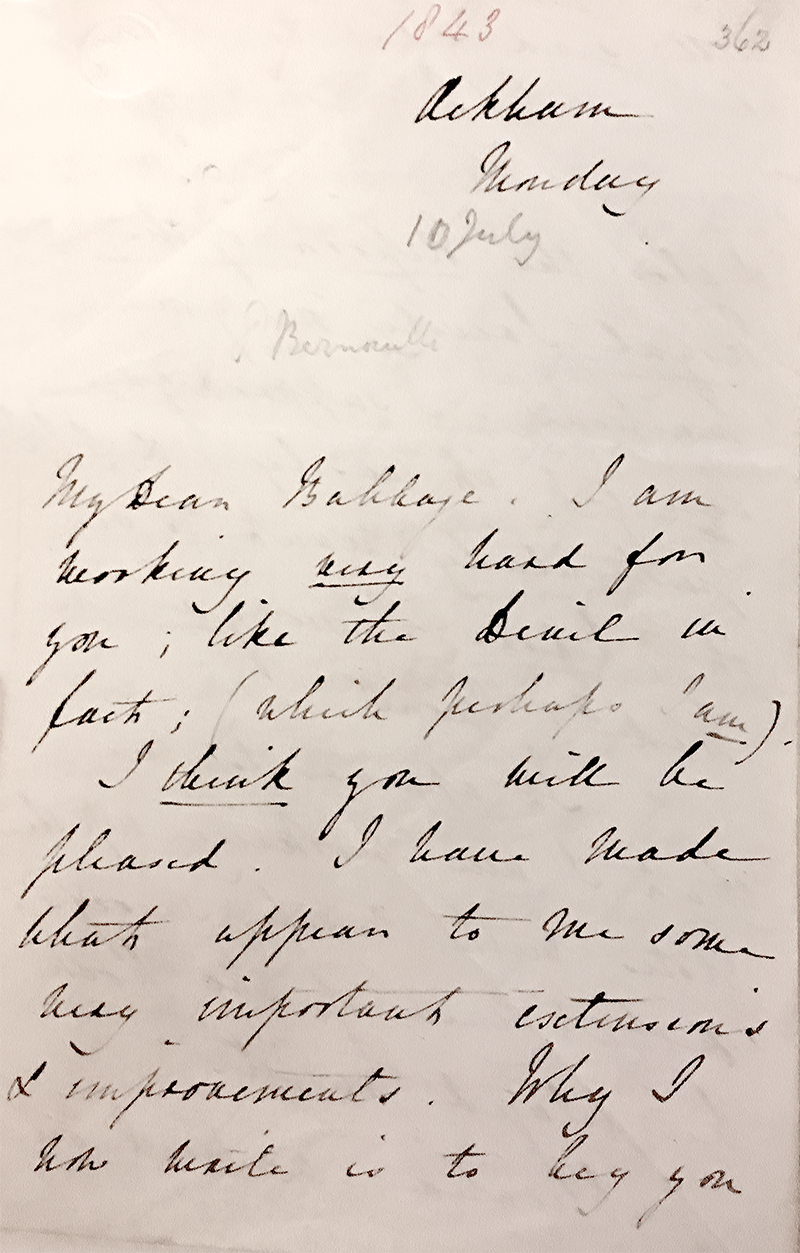 1843
362
Ockham
Monday
10 July
Bernouilli
My Dear Babbage. I am
working very hard for
you; like the Devil in
fact; (which perhaps I am).
I think you will be
pleased. I have made
what appear to me some
very important extensions
& improvements. Why I
now write is to beg you